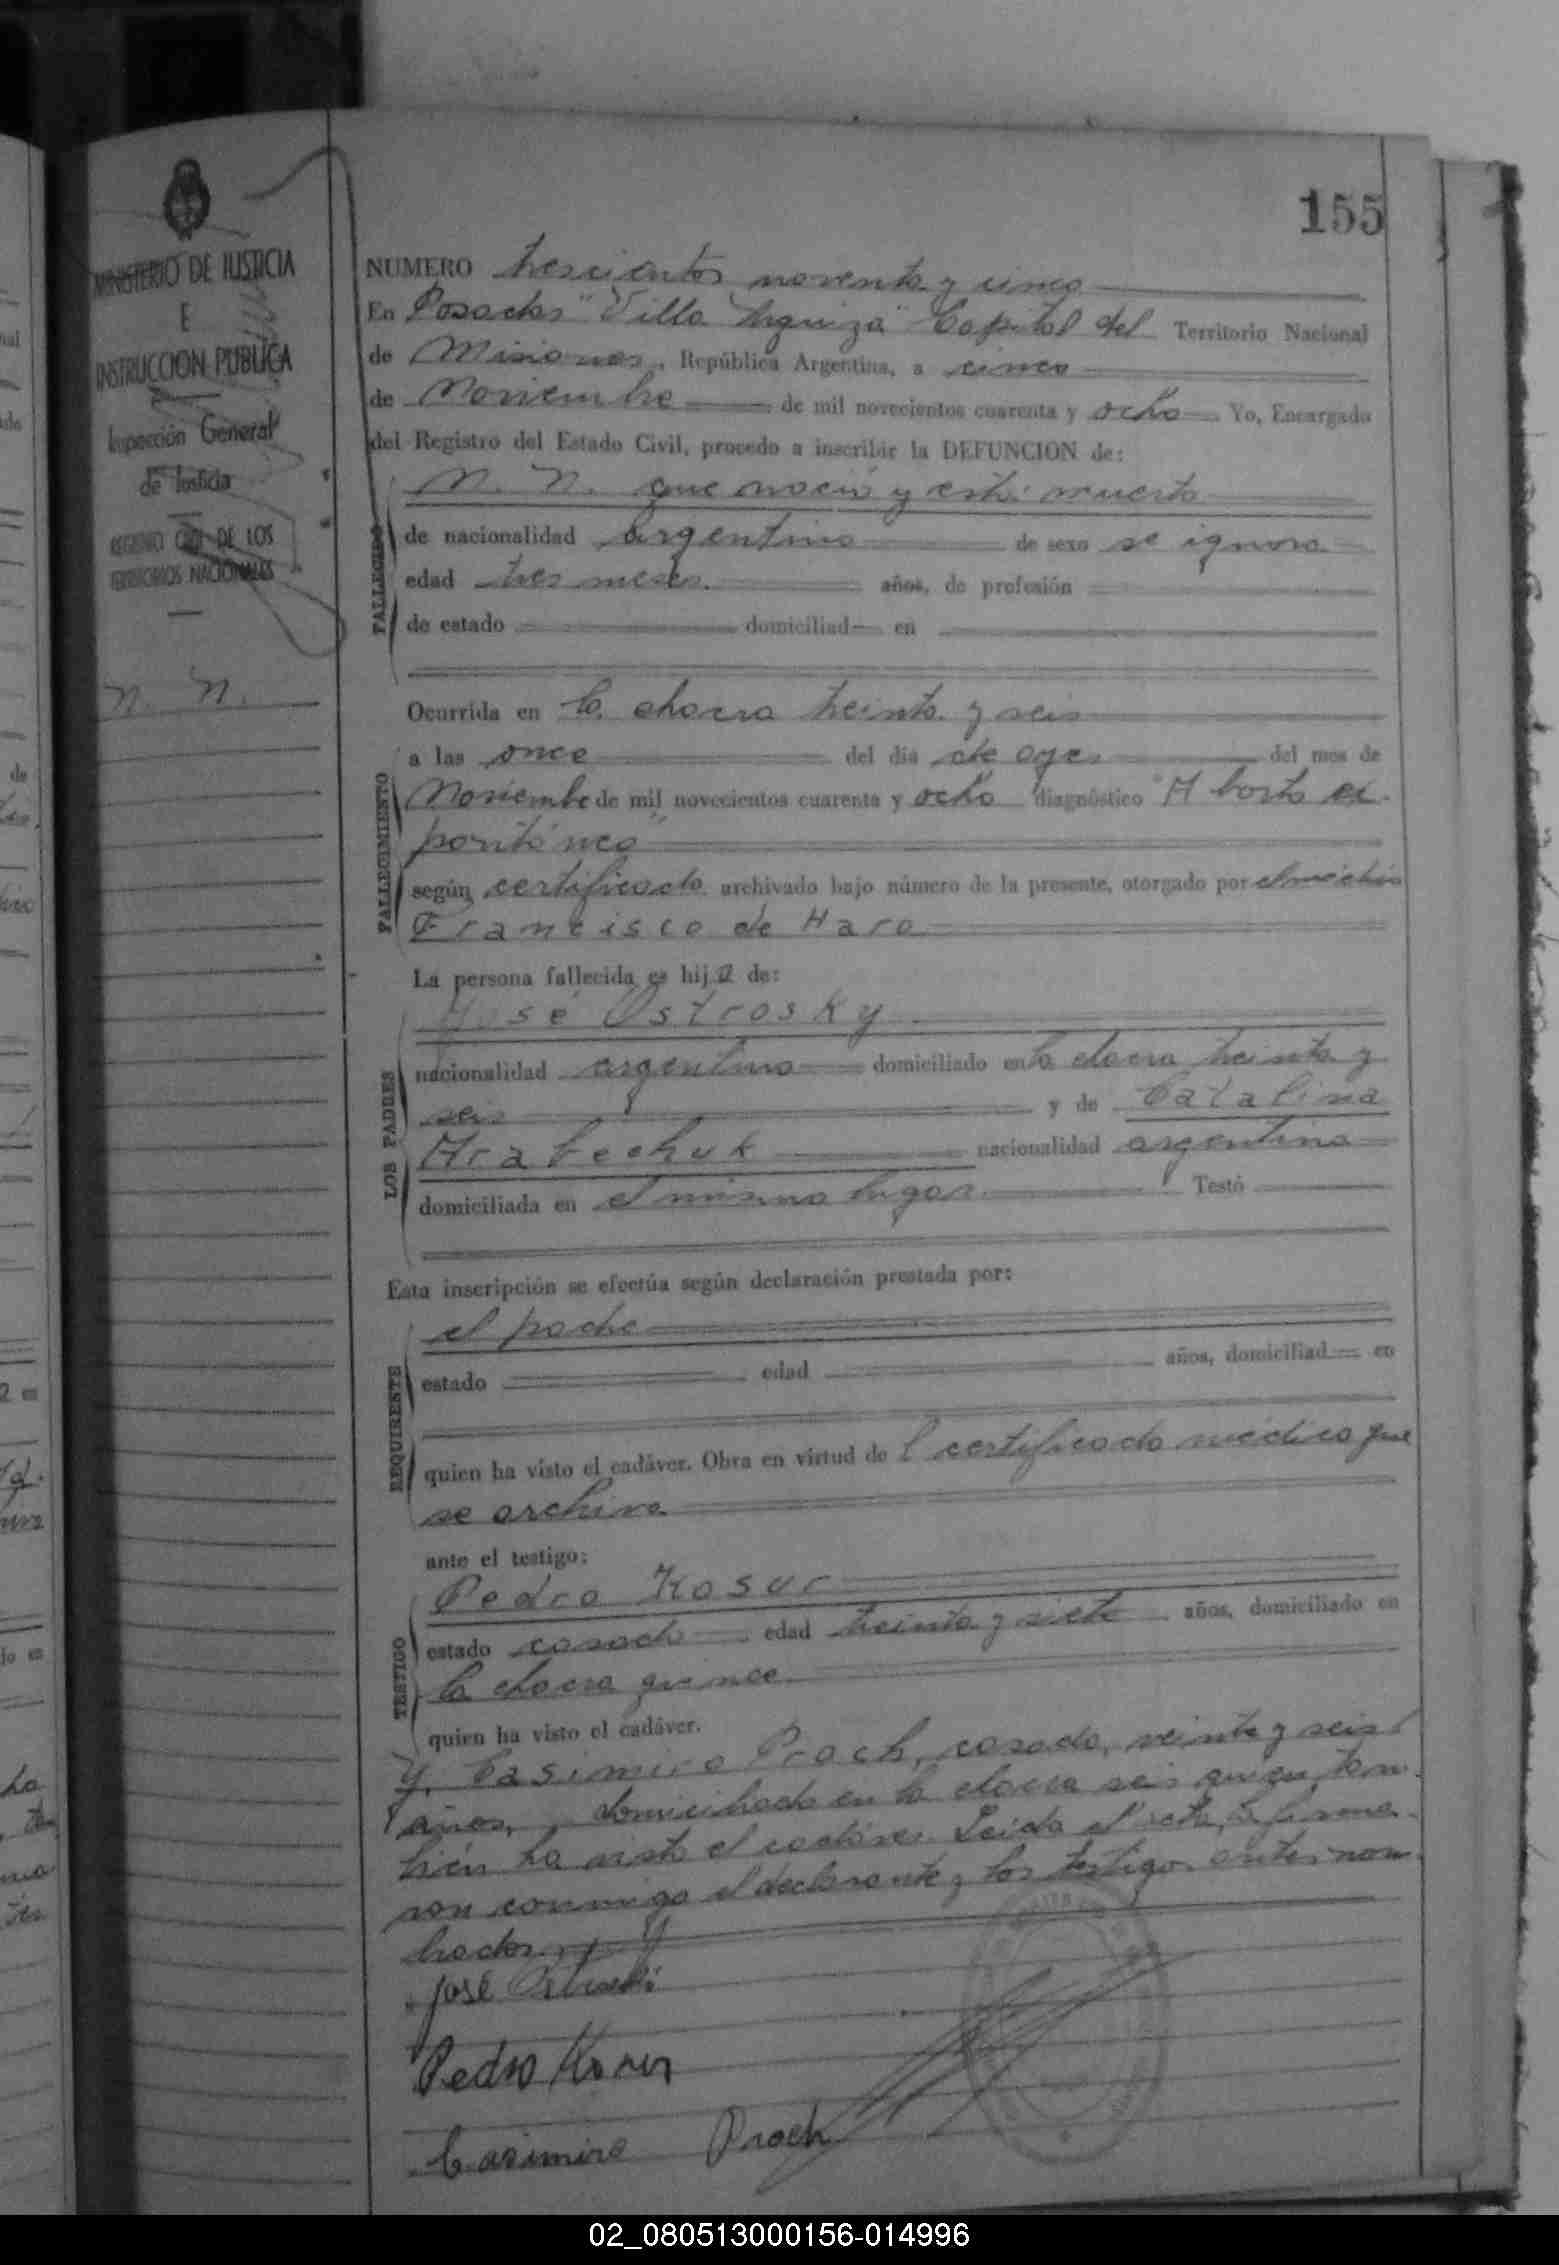 155
MINISTERIO DE JUSTICIA
E
INSTRUCCION PUBLICA
Inspección General
de Justicia
REGISTRO CIVIL DE LOS
TERRITORIOS NACIONALES
N. N.
NUMERO trescientos noventa y cinco
En Posadas "Villa Urquiza" Capital del Territorio Nacional
de Misiones, República Argentina, a cinco
de Noviembre de mil novecientos cuarenta y ocho Yo, Encargado
del Registro del Estado Civil, procedo a inscribir la DEFUNCION de:
FALLECIDO
N. N. que nació y está muerto
de nacionalidad argentino de sexo se ignora
edad tres meses. años, de profesión
de estado domiciliad en
Ocurrida en la chacra treinta y seis
FALLECIMIENTO
a las once del día de oyes del mes de
Noviembre de mil novecientos cuarenta y ocho diagnóstico "Aborto es-
pontáneo"
según certificado archivado bajo número de la presente, otorgado por el médico
Francisco de Haro
La persona fallecida es hijo de:
LOS PADRES
José Ostrosky
nacionalidad argentino domiciliado en la chacra treinta y
seis y de Catalina
Hrabechuk nacionalidad argentina
domiciliada en el mismo lugar. Testó
Esta inscripción se efectúa según declaración prestada por:
REQUIRENTE
el padre
estado edad años, domiciliad en
quien ha visto el cadáver. Obra en virtud de l certificado médico que
se archiva
ante el testigo:
TESTIGO
Pedro Kosur
estado casado edad treinta y siete años, domiciliado en
la chacra quince
quien ha visto el cadáver.
Y, Casimiro Proch, casado, veinte y seis
años, domiciliado en la chacra seis quien tam-
bién ha visto el cadáver. Leida el acta, la firma-
ron conmigo el declarante y los testigos antes nom-
brados.
José
Pedro Kosur
Casimiro Proch
02_080513000156-014996